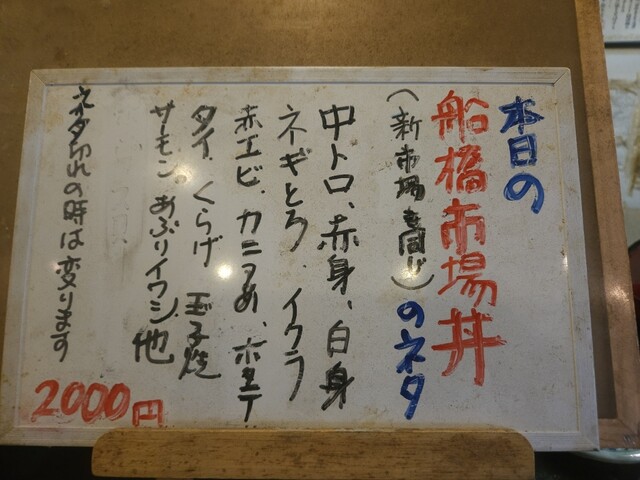 本日の
船橋市場丼
(新市場も同じ)のネタ
中トロ、赤身、白身
ネギとろ、イクラ
赤エビ、カニつめ、ホタテ
タイ、くらげ 玉子焼
サーモン、あぶりイワシ、他
ネタ切れの時は変ります
2000円